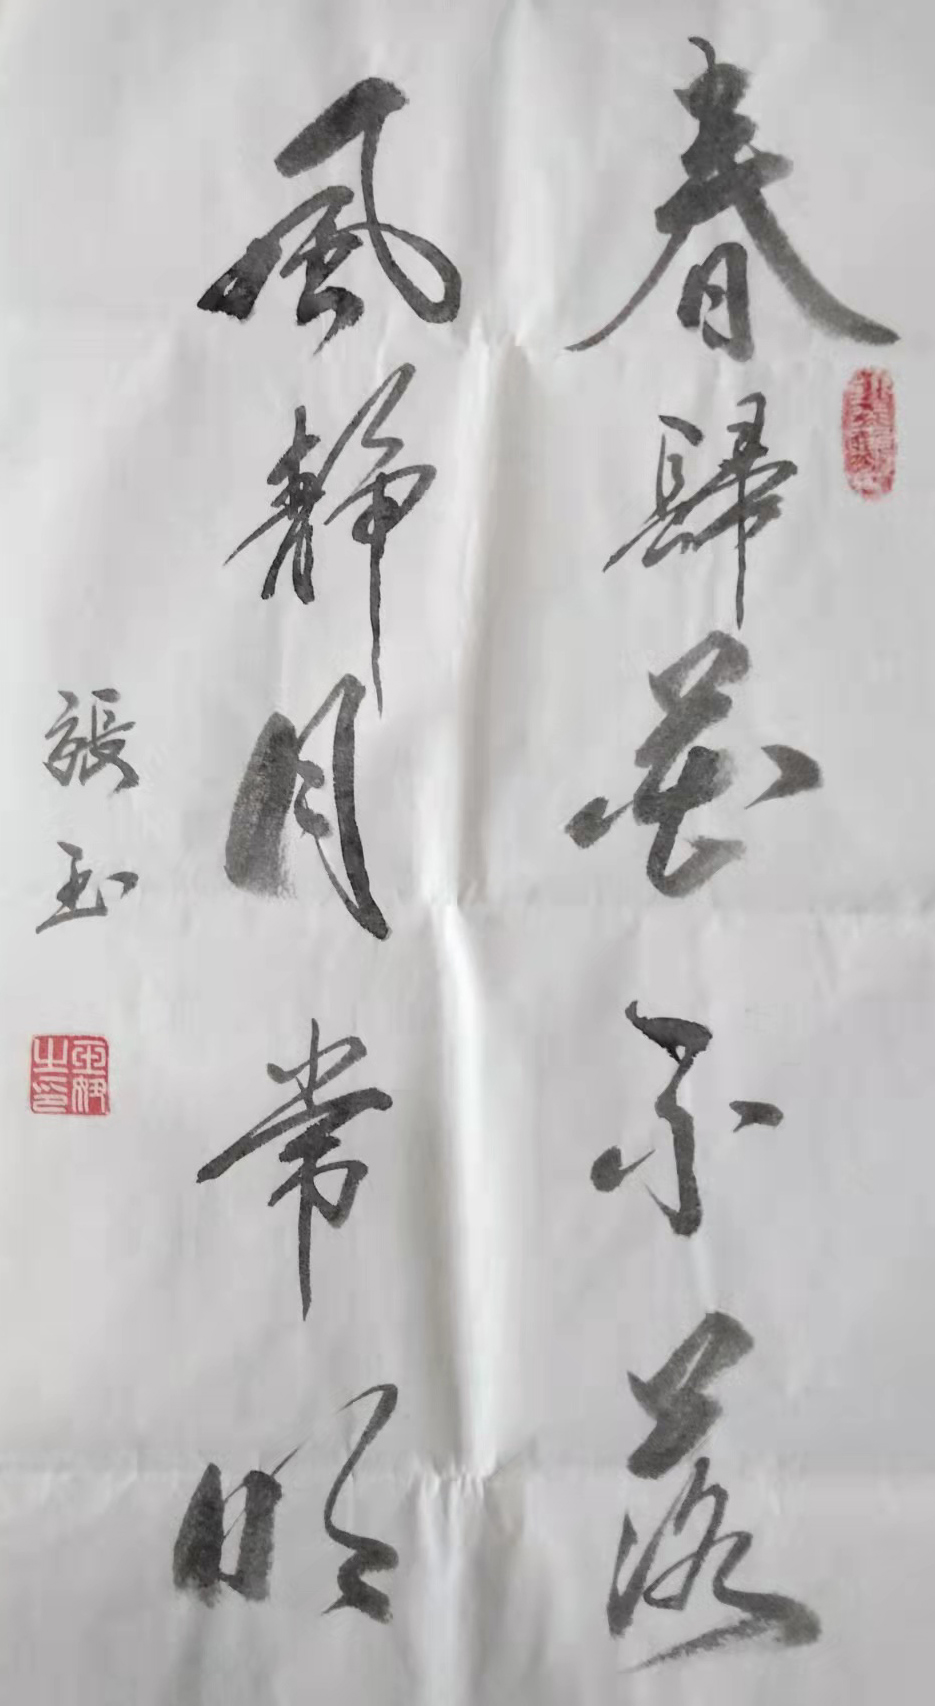 春歸花不落
風靜月常明
張玉